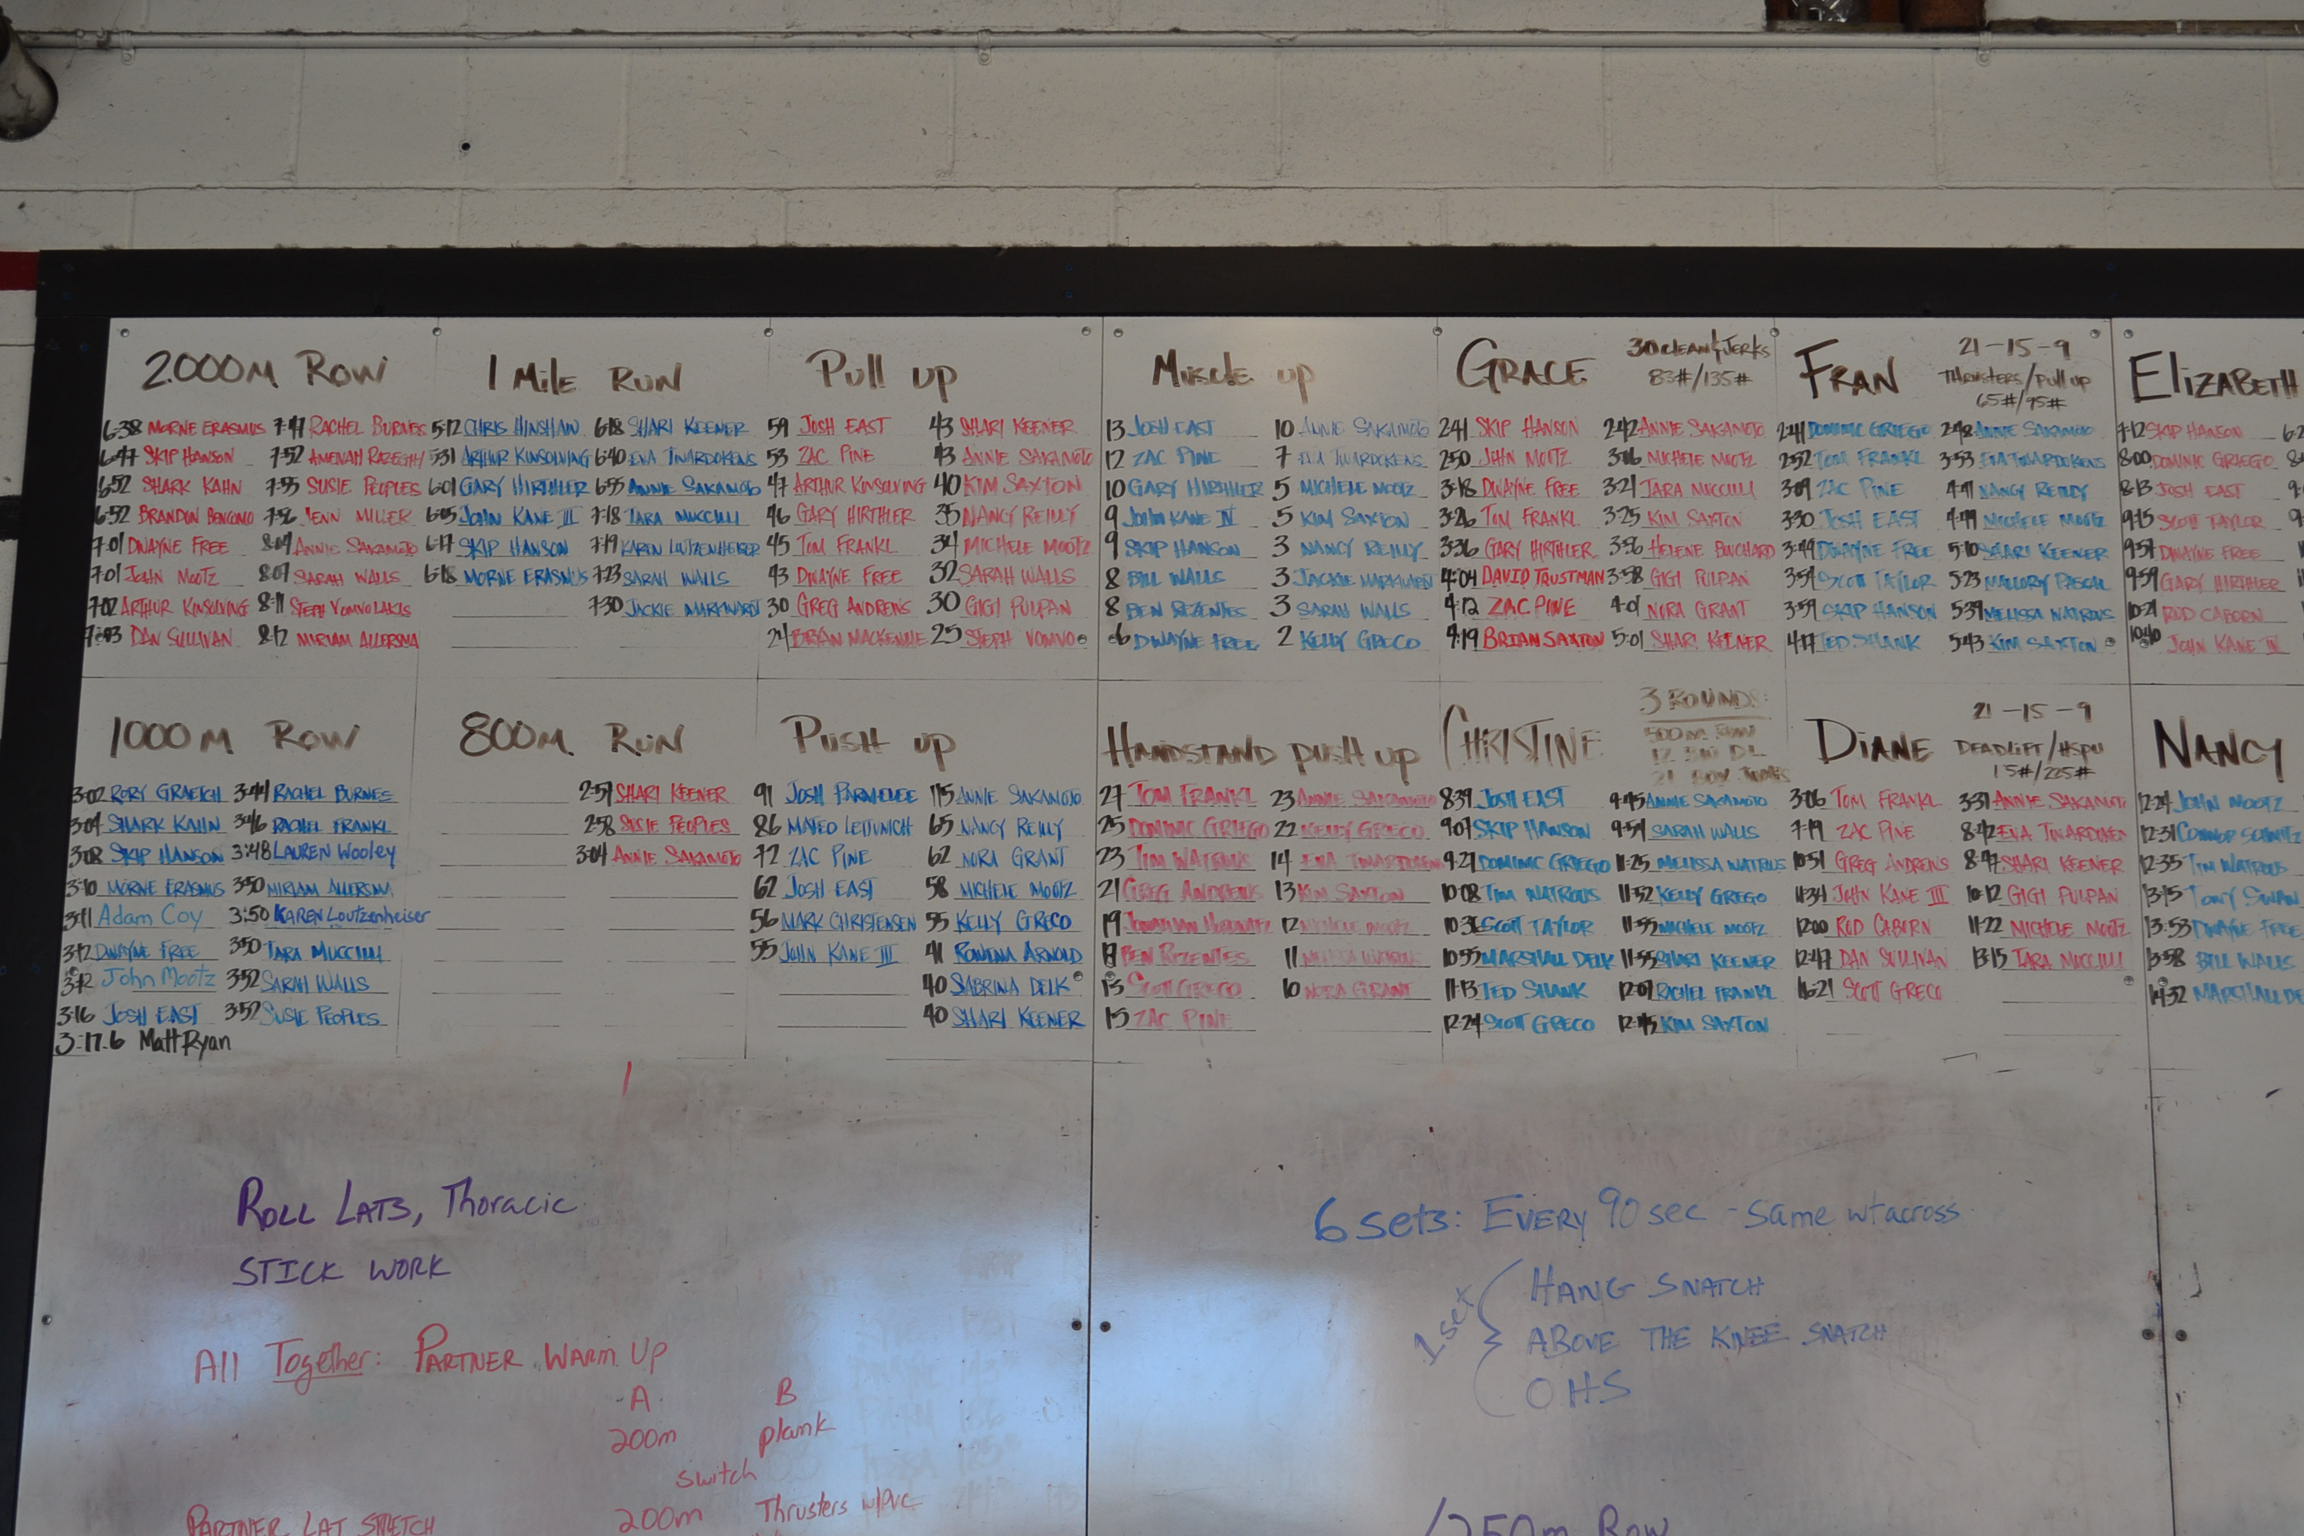 2000M ROW
6:38 MORNE ERASMUS 7:47 RACHEL BURNES
6:47 SKIP HANSON 7:52 AMENAH
6:52 SHARK KAHN 7:55 SUSIE PEOPLES
6:52 BRANDON 7:56 JENN MILLER
7:01 DWAYNE FREE 8:04 ANNIE SAKAMOTO
7:01 JOHN MOOTZ 8:07 SARAH WALLS
7:02 ARTHUR KINSOLVING 8:11 STEPH VOMVOLAKIS
7:03 DAN SULLIVAN 8:12 MIRIAM ALLERSMA
1 MILE RUN
5:12 CHRIS HINSHAW 6:18 SHARI KEENER
5:31 ARTHUR KINSOLVING 6:40 EVA TWARDOKENS
6:01 GARY HIRTHLER 6:55 ANNIE SAKAMOTO
6:05 JOHN KANE III 7:18 TARA MUCCILLI
6:17 SKIP HANSON 7:19 KAREN LUTZENHEISER
6:18 MORNE ERASMUS 7:23 SARAH WALLS
7:30 JACKIE MARKWARDT
Pull UP
59 JOSH EAST 43 SHARI KEENER
53 ZAC PINE 43 ANNIE SAKAMOTO
47 ARTHUR KINSOLVING 40 KIM SAXTON
46 GARY HIRTHLER 35 NANCY REILLY
45 TOM FRANKL 34 MICHELE MOOTZ
43 DWAYNE FREE 32 SARAH WALLS
30 GREG ANDRENS 30 GIGI PULPAN
24 BRYAN MACKENZIE 25 STEPH VOMVO
Muscle up
13 JOSH EAST 10 ANNIE SAKAMOTO
12 ZAC PINE 7 EVA TWARDOKENS
10 GARY HIRTHLER 5 MICHELE MOOTZ
9 JOHN KANE IV 5 KIM SAXTON
9 SKIP HANSON 3 NANCY REILLY
8 BILL WALLS 3 JACKIE MARKWARDT
8 BEN REZENTES 3 SARAH WALLS
6 DWAYNE FREE 2 KELLY GRECO
GRACE 30 CLEAN & JERKS
83#/135#
2:41 SKIP HANSON 2:42 ANNIE SAKAMOTO
2:50 JOHN MOOTZ 3:16 MICHELE MOOTZ
3:18 DWAYNE FREE 3:21 TARA MUCCILLI
3:26 TOM FRANKL 3:25 KIM SAXTON
3:36 GARY HIRTHLER 3:56 HELENE BOUCHARD
4:04 DAVID TRUSTMAN 3:58 GIGI PULPAN
4:12 ZAC PINE 4:01 NORA GRANT
4:19 BRIAN SAXTON 5:01 SHARI KEENER
FRAN 21-15-9
THRUSTERS/Pull up
65#/95#
2:41 DOMINIC GRIEGO 2:48 ANNIE SAKAMOTO
2:52 TOM FRANKL 3:53 EVA TWARDOKENS
3:09 ZAC PINE 4:41 NANCY REILLY
3:30 JOSH EAST 4:49 MICHELE MOOTZ
3:49 DWAYNE FREE 5:10 SHARI KEENER
3:54 SCOTT TAYLOR 5:23 MALLORY PASCAL
3:59 SKIP HANSON 5:39 MELISSA WATROUS
4:17 TED SHANK 5:43 KIM SAXTON
Elizabeth
7:12 SKIP HANSON
8:00 DOMINIC GRIEGO
8:13 JOSH EAST
9:15 SCOTT TAYLOR
9:57 DWAYNE FREE
9:59 GARY HIRTHLER
10:21 ROD CABORN
10:40 JOHN KANE IV
1000M ROW
3:02 RORY GRAETCH 3:44 RACHEL BURNES
3:04 SHARK KAHN 3:46 RACHEL FRANKL
3:08 SKIP HANSON 3:48 LAUREN Wooley
3:10 MORNE ERASMUS 3:50 MIRIAM ALLERSMA
3:11 Adam Coy 3:50 KAREN Loutzenheiser
3:12 DWAYNE FREE 3:50 TARA MUCCILLI
3:12 John Mootz 3:52 SARAH WALLS
3:16 JOSH EAST 3:52 SUSIE PEOPLES
3:17.6 Matt Ryan
800M RUN
2:57 SHARI KEENER
2:58 SUSIE PEOPLES
3:04 ANNIE SAKAMOTO
PUSH UP
91 JOSH PARMHOUSE 115 ANNIE SAKAMOTO
86 MATEO 65 NANCY REILLY
72 ZAC PINE 62 NORA GRANT
62 JOSH EAST 58 MICHELE MOOTZ
56 MARK CHRISTENSEN 55 KELLY GRECO
55 JOHN KANE III 41 ROWENA ARNOLD
40 SABRINA DELK
40 SHARI KEENER
HANDSTAND PUSH UP
27 TOM FRANKL 23 ANNIE SAKAMOTO
25 DOMINIC GRIEGO 22 KELLY GRECO
23 TIM WATROUS 14 EVA TWARDOKENS
21 GREG ANDRENS 13 KIM SAXTON
19 JONATHAN 12 MICHELE MOOTZ
BEN REZENTES 11 MELISSA WATROUS
15 SCOTT GRECO 10 NORA GRANT
15 ZAC PINE
CHRISTINE 3 ROUNDS:
500M ROW
12 BW DL
21 BOX JUMPS
8:39 JOSH EAST 9:45 ANNIE SAKAMOTO
9:07 SKIP HANSON 9:59 SARAH WALLS
9:27 DOMINIC GRIEGO 11:25 MELISSA WATROUS
10:08 TIM WATROUS 11:52 KELLY GREGO
10:36 SCOTT TAYLOR 11:55 MICHELE MOOTZ
10:55 MARSHALL DELK 11:55 SHARI KEENER
11:13 TED SHANK 12:07 RACHEL FRANKL
12:24 SCOTT GRECO 12:45 KIM SAXTON
DIANE 21-15-9
DEADLIFT/HSPU
15#/225#
3:06 TOM FRANKL 3:37 ANNIE SAKAMOTO
7:19 ZAC PINE 8:42 EVA TWARDOKEN
10:51 GREG ANDRENS 8:47 SHARI KEENER
11:34 JOHN KANE III 10:12 GIGI PULPAN
12:00 ROD CABORN 11:22 MICHELE MOOTZ
12:47 DAN SULLIVAN 13:15 TARA MUCCILLI
16:21 SCOTT GRECO
NANCY
12:24 JOHN MOOTZ
12:31 CONNOR
12:35 TIM WATROUS
13:15 TONY SWAN
13:53 DWAYNE FREE
13:58 BILL WALLS
14:32 MARSHALL DE
ROLL LATS, Thoracic
STICK WORK
All Together: PARTNER WARM UP
A B
200m plank
switch
200m Thrusters w/PVC
PARTNER LAT STRETCH
6 sets: EVERY 90 sec - same wt across
1 set
HANG SNATCH
ABOVE THE KNEE SNATCH
OHS
250m Row